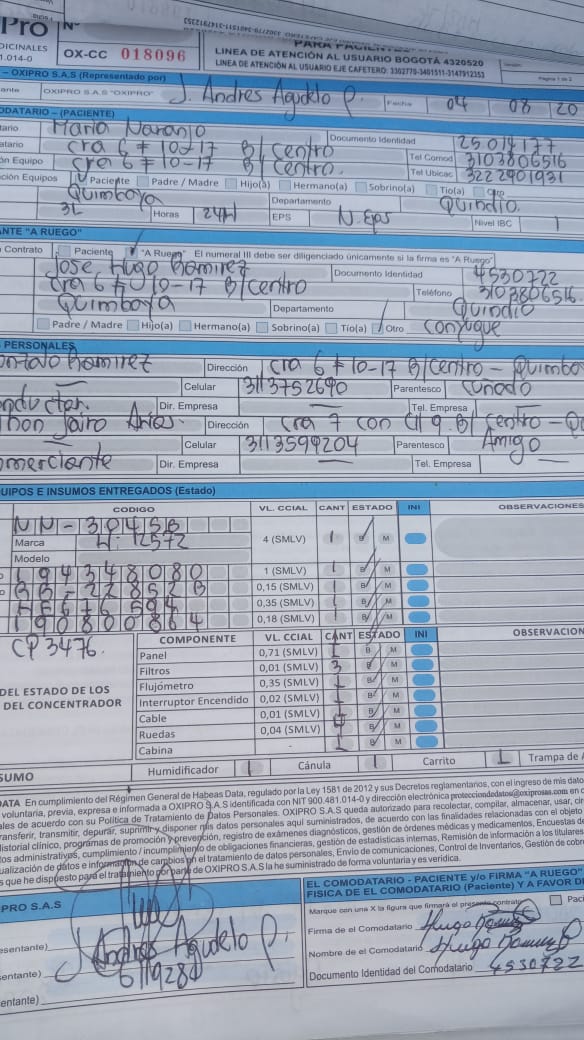 Pro N°
PARA PACIENTE
DICINALES
1.014-0
OX-CC 018096
LINEA DE ATENCIÓN AL USUARIO BOGOTÁ 4320520
LINEA DE ATENCIÓN AL USUARIO EJE CAFETERO: 3302770-3401511-3147912353
Página 1 de 2
- OXIPRO S.A.S (Representado por)
ante OXIPRO S.A.S "OXIPRO" J. Andres Agudelo P. Fecha 04 08 20
ODATARIO - (PACIENTE)
tario Maria Naranjo Documento Identidad 25014177
atario Cra 6 # 10-17 B/ Centro Tel Comod 3103806516
ón Equipo Cra 6 # 10-17 B/ Centro. Tel Ubicac 3222901931
ción Equipos Paciente Padre / Madre Hijo(a) Hermano(a) Sobrino(a) Tío(a) Otro
Quimbaya Departamento Quindio
3L Horas 24H EPS N. Eps Nivel IBC 1
ANTE "A RUEGO"
Contrato Paciente "A Ruego" El numeral III debe ser diligenciado únicamente si la firma es 'A Ruego'
Jose Hugo Ramirez Documento Identidad 4530722
Cra 6 # 10-17 B/Centro Teléfono 3103806516
Quimbaya Departamento Quindio
Padre / Madre Hijo(a) Hermano(a) Sobrino(a) Tío(a) Otro Conyugue
PERSONALES
Ramirez Dirección Cra 6 # 10-17 B/Centro - Quimba
Celular 3113752690 Parentesco Cuñado
onductor. Dir. Empresa Tel. Empresa
hon Jairo Arias. Dirección Cra 7 con Cll 9. B/ Centro - Qu
Celular 3113599204 Parentesco Amigo
omerciante Dir. Empresa Tel. Empresa
UIPOS E INSUMOS ENTREGADOS (Estado)
CODIGO VL. CCIAL CANT ESTADO INI OBSERVACIONES
NN-38455B 4 (SMLV) 1 B M
Marca
Modelo
194348080 1 (SMLV) 1 B M
BB-22852B 0,15 (SMLV) 1 B M
0,35 (SMLV) 1 B M
190800864 0,18 (SMLV) 1 B M
CP3476.
COMPONENTE VL. CCIAL CANT ESTADO INI OBSERVACION
Panel 0,71 (SMLV) 1 B M
Filtros 0,01 (SMLV) 3 B M
DEL ESTADO DE LOS
DEL CONCENTRADOR
Flujómetro 0,35 (SMLV) 1 B M
Interruptor Encendido 0,02 (SMLV) 1 B M
Cable 0,01 (SMLV) 1 B M
Ruedas 0,04 (SMLV) 4 B M
Cabina - 1 B M
SUMO Humidificador 1 Cánula 1 Carrito 1 Trampa de A
DATA En cumplimiento del Régimen General de Habeas Data, regulado por la Ley 1581 de 2012 y sus Decretos reglamentarios, con el ingreso de mis dato
voluntaria, previa, expresa e informada a OXIPRO S.A.S identificada con NIT 900.481.014-0 y dirección electrónica protecciondedatos@oxiprosas.com en c
ales de acuerdo con su Política de Tratamiento de Datos Personales. OXIPRO S.A.S queda autorizado para recolectar, compilar, almacenar, usar, cir
ransferir, transmitir, depurar, suprimir y disponer mis datos personales aquí suministrados, de acuerdo con las finalidades relacionadas con el objeto
istorial clínico, programas de promoción y prevención, registro de exámenes diagnósticos, gestión de órdenes médicas y medicamentos, Encuestas de
tos administrativos, cumplimiento / incumplimiento de obligaciones financieras, gestión de estadísticas internas, Remisión de información a los titulares
ualización de datos e información de cambios en el tratamiento de datos personales, Envío de comunicaciones, Control de Inventarios, Gestión de cobr
s que he dispuesto para el tratamiento por parte de OXIPRO S.A.S la he suministrado de forma voluntaria y es verídica.
PRO S.A.S
EL COMODATARIO - PACIENTE y/o FIRMA "A RUEGO"
FISICA DE EL COMODATARIO (Paciente) Y A FAVOR D
Marque con una X la figura que firmará el presente contrato Paci
Firma de el Comodatario Hugo Ramirez
esentante)
entante) J Andres Agudelo P. Nombre de el Comodatario Hugo Ramirez
Documento Identidad del Comodatario 4530722
entante)